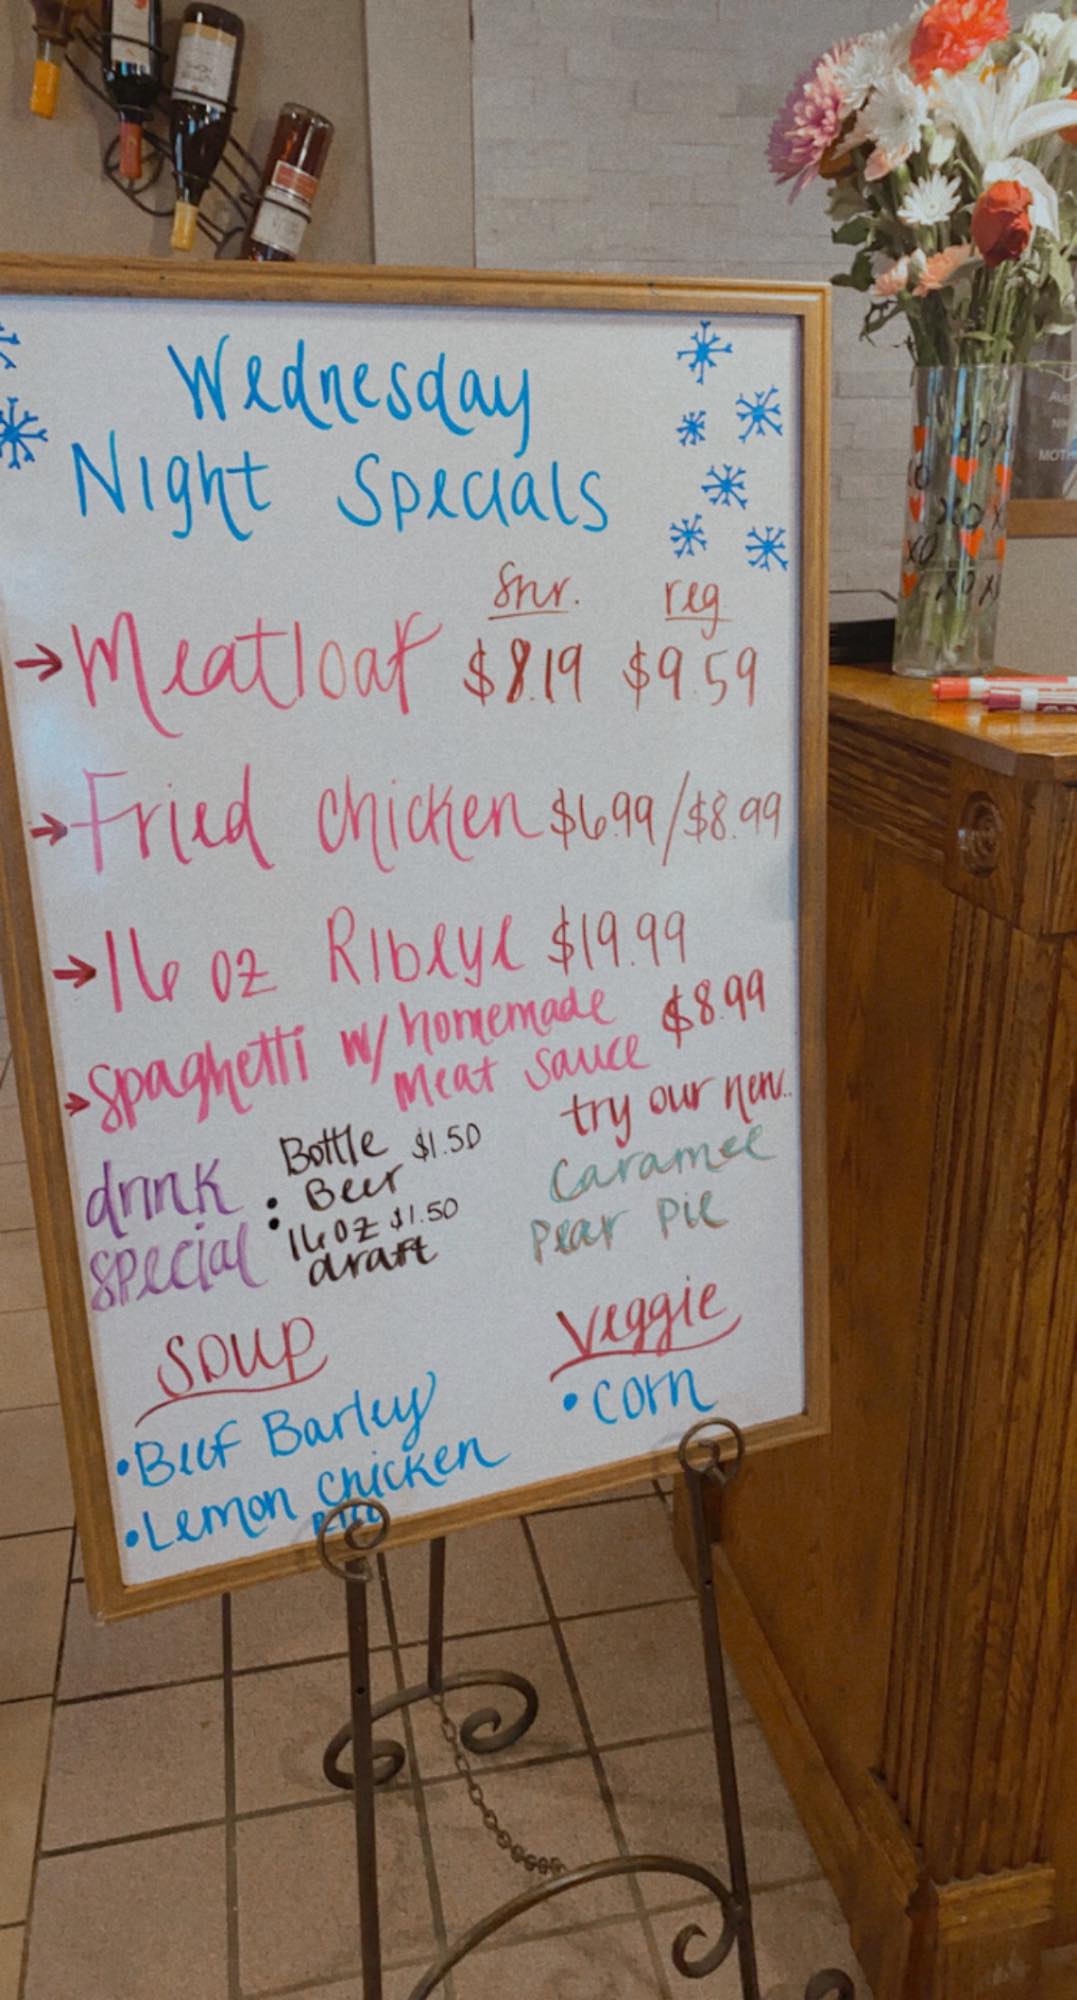 Wednesday
Night Specials
Snr. reg.
→ Meatloaf $8.19 $9.59
→ Fried chicken $6.99/$8.99
→ 16 oz Ribeye $19.99
→ Spaghetti w/ homemade $8.99
meat sauce
try our new..
Caramel
Pear Pie
drink
special
• Bottle $1.50
Beer
• 16 oz $1.50
draft
Soup
• Beef Barley
• Lemon chicken
Rice
Veggie
• corn